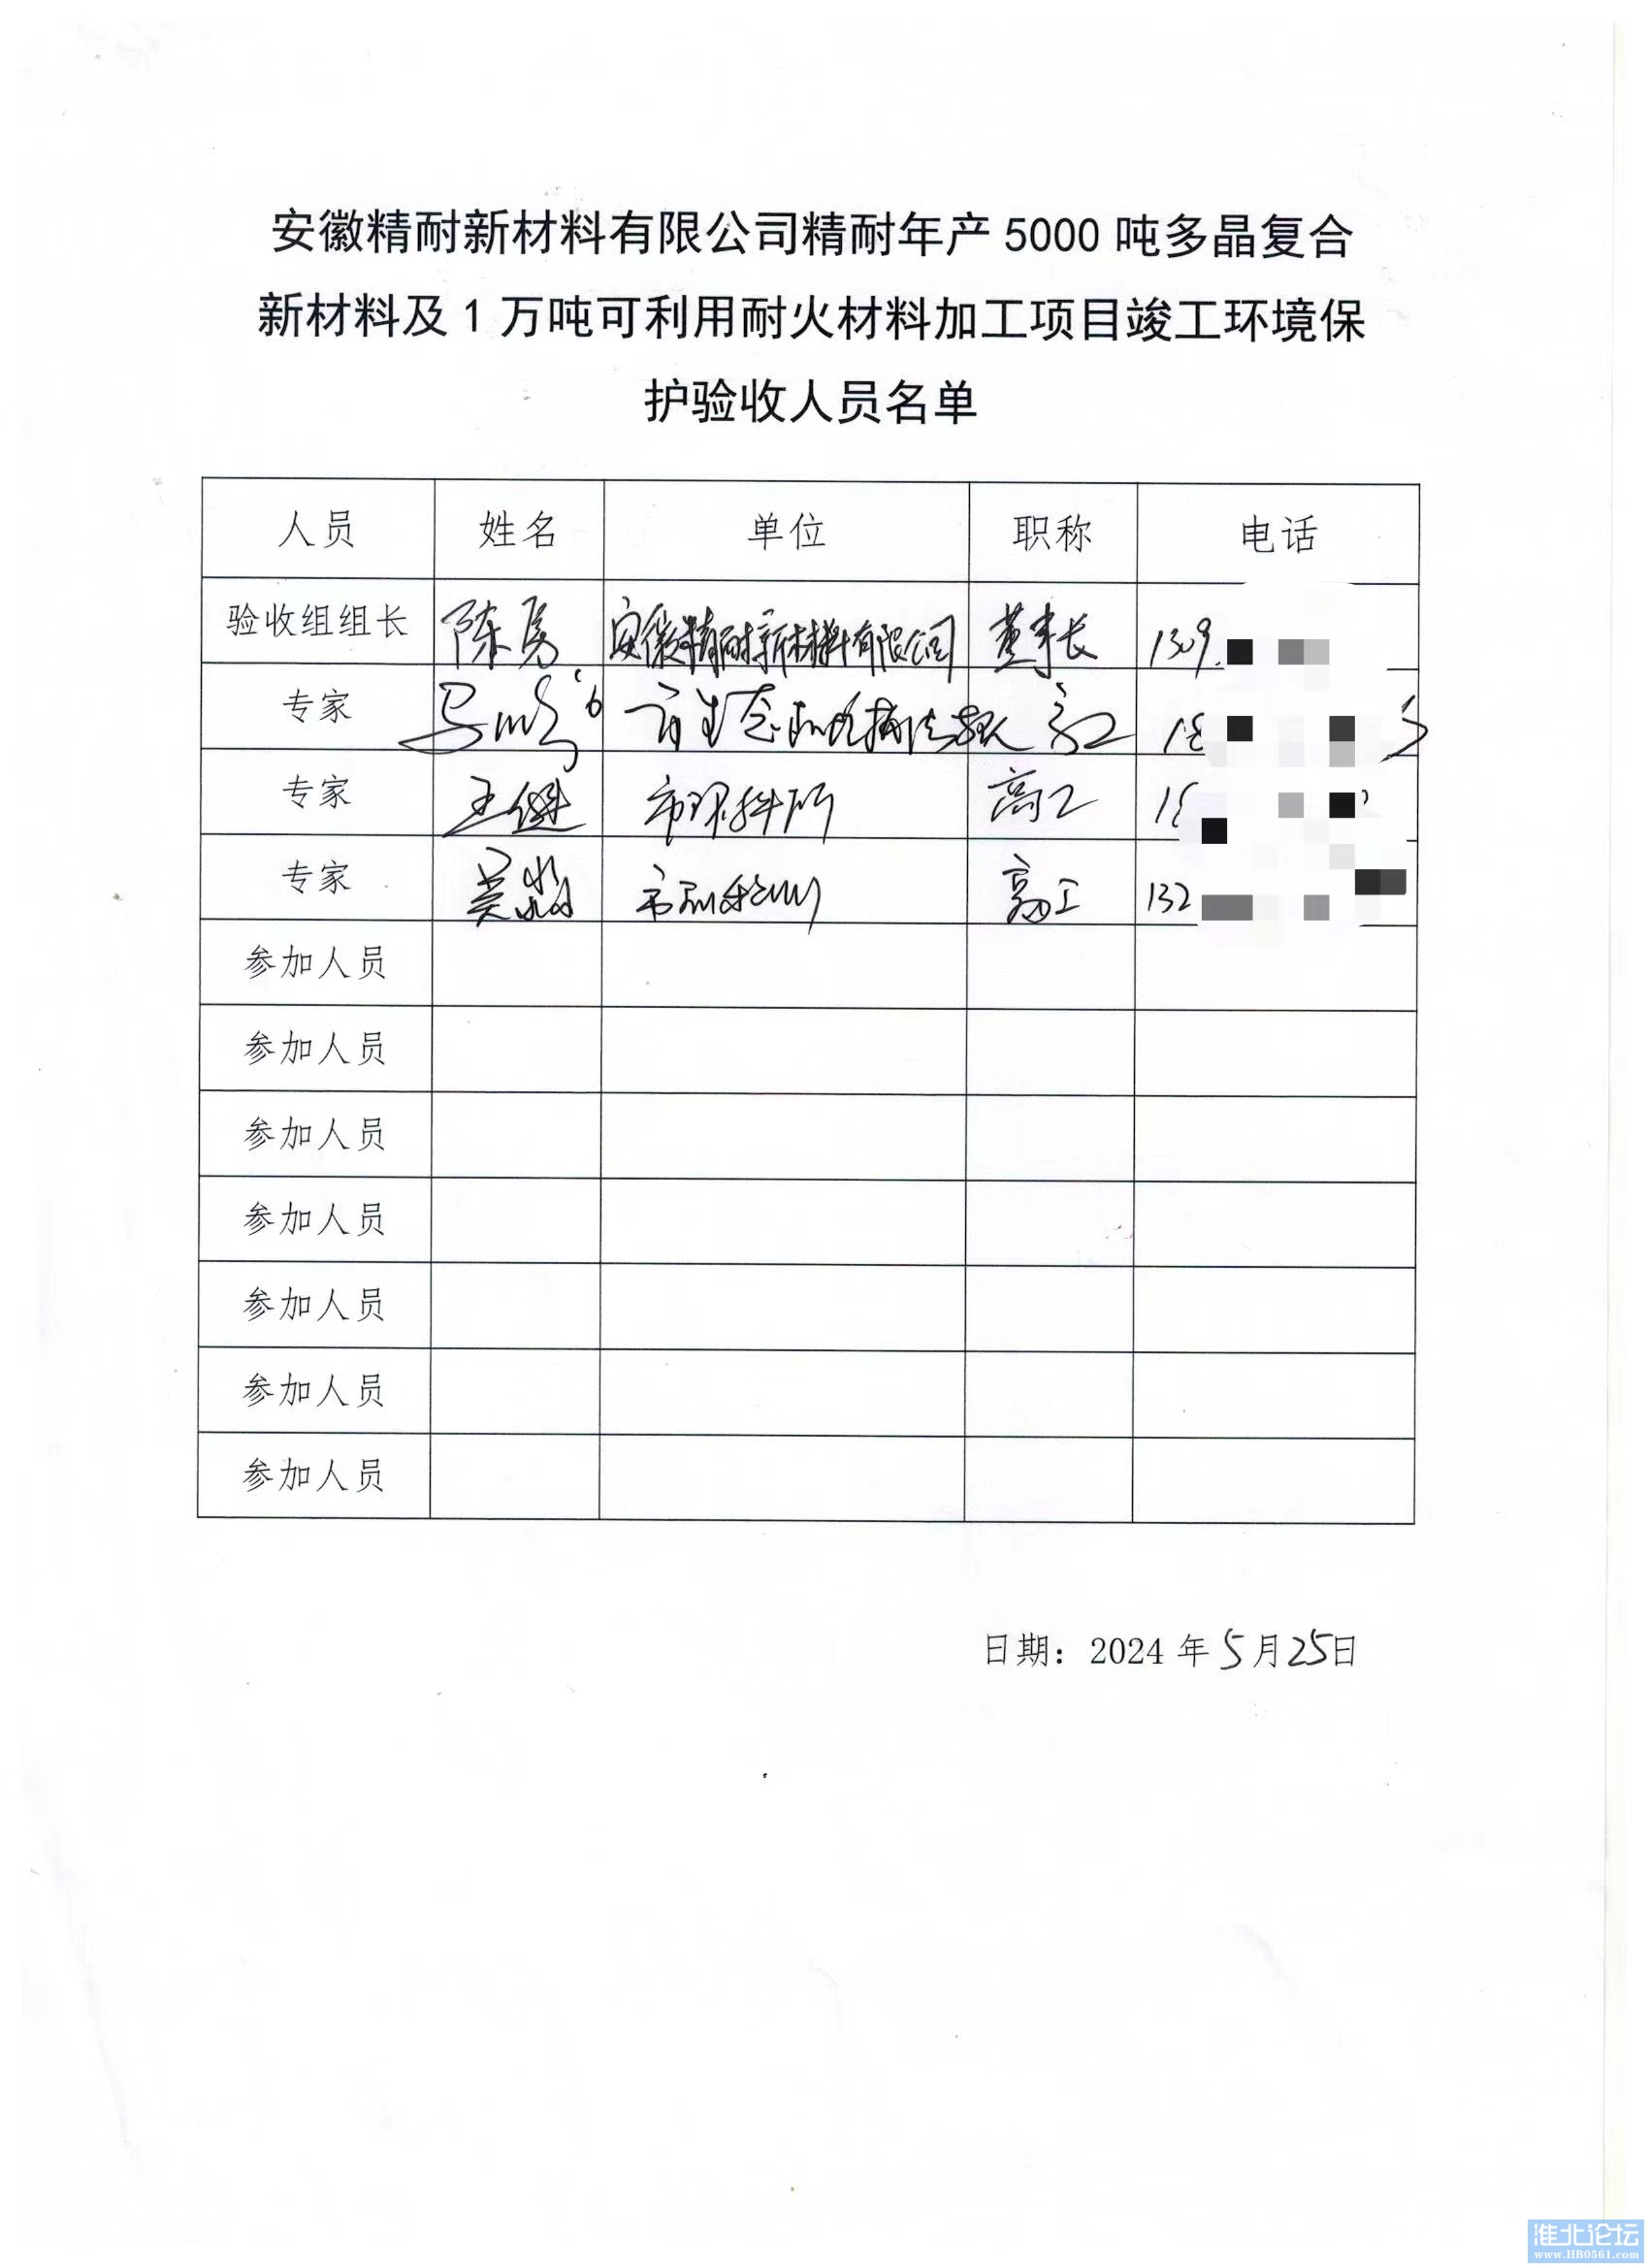 安徽精耐新材料有限公司精耐年产 5000 吨多晶复合
新材料及 1 万吨可利用耐火材料加工项目竣工环境保
护验收人员名单
人员 姓名 单位 职称 电话
验收组组长 陈勇 安徽精耐新材料有限公司 董事长 139
专家 市生态 高工
专家 王继 市环科所 高工
专家 吴淼 市环科所 高工 132
参加人员
参加人员
参加人员
参加人员
参加人员
参加人员
参加人员
日期：2024 年 5 月 25 日
淮北论坛
www.HB0561.com